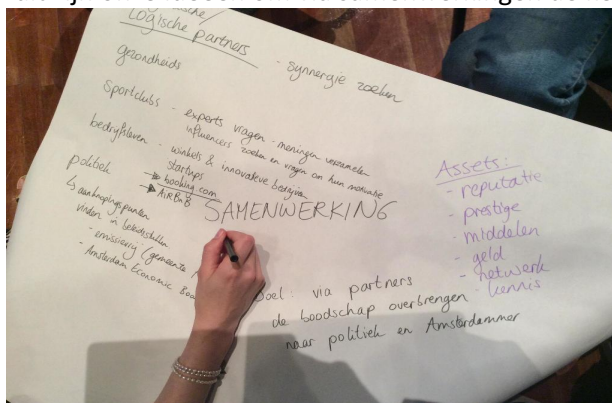 Logische partners
- synnergie zoeken
gezondheids
Sportclubs - experts vragen - meningen verzamelen
influencers zoeken en vragen om hun motivatie
bedrijfsleven - winkels & innovatieve bedrijven
startups
→ booking.com
→ AirBnB
politiek
↳ aanknopingspunten
vinden in beleidsstukken
- emissievrij (gemeente
- Amsterdam Economic Boa
SAMENWERKING
Doel: via partners
de boodschap overbrengen
naar politiek en Amsterdammer
Assets:
- reputatie
- prestige
- middelen
- geld
- netwerk
- kennis